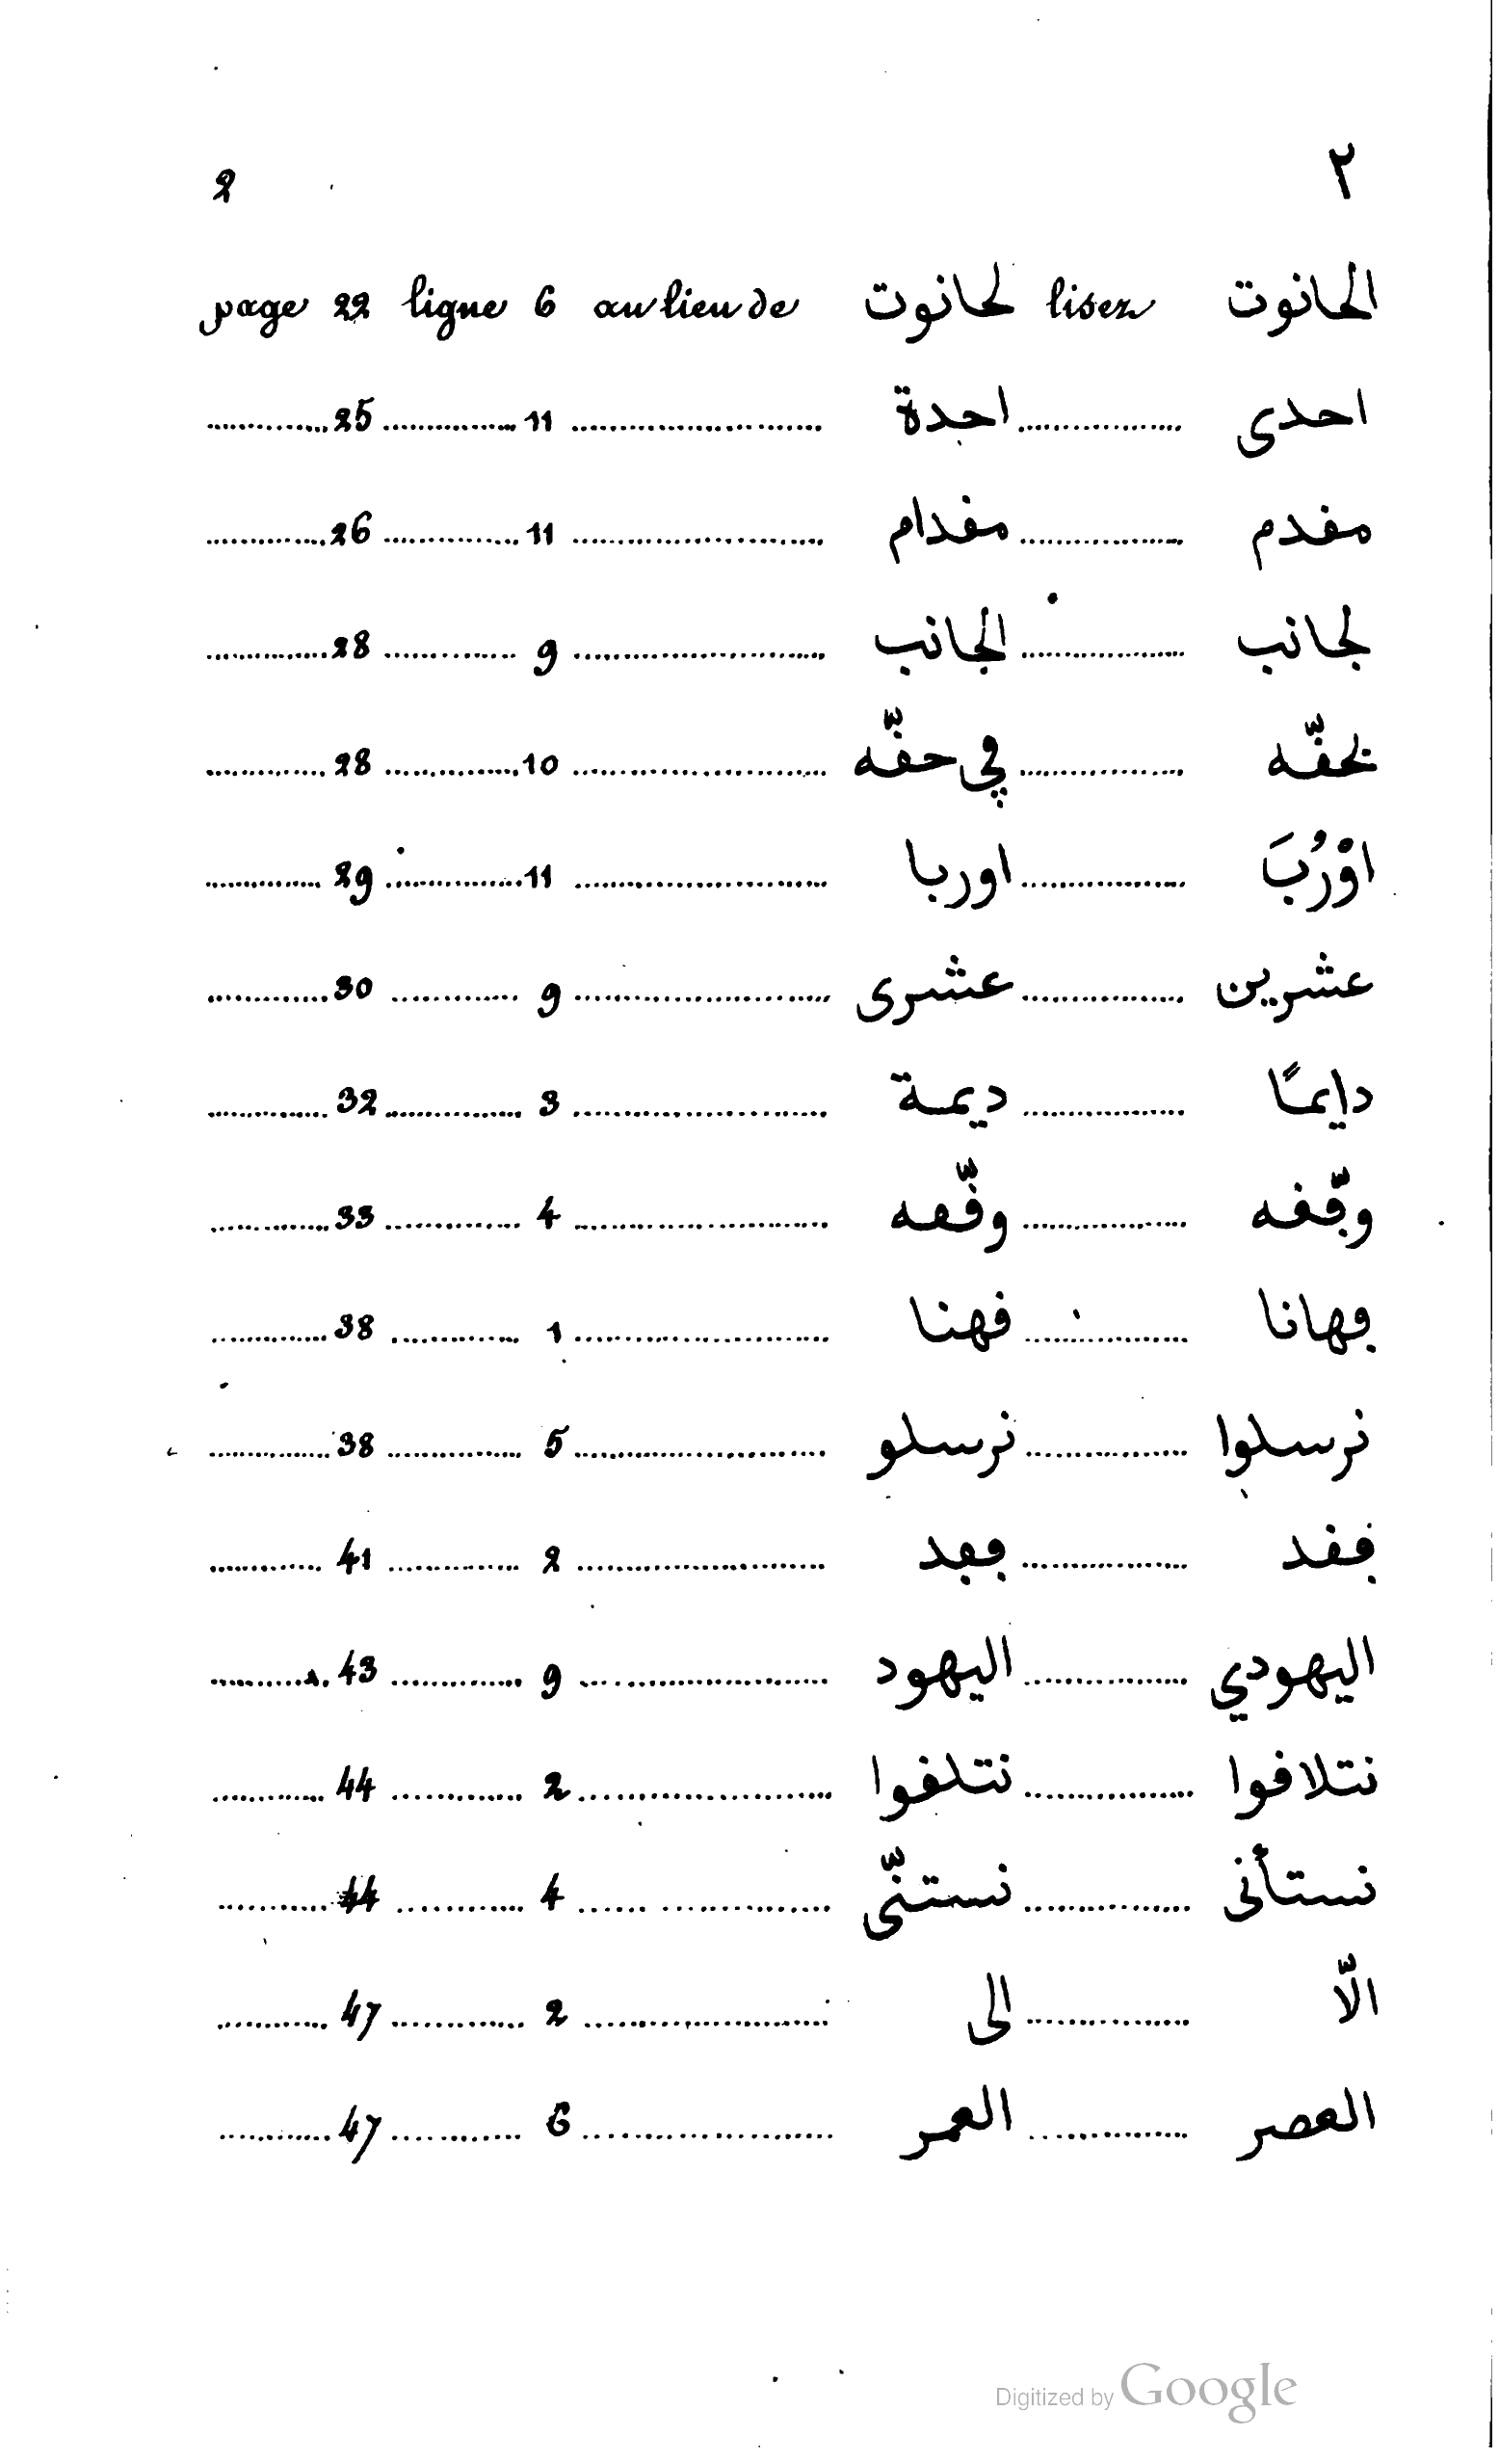 2 ٢
page 22 ligne 6 au lieu de لحانوت lisez الحانوت
............ 25 ............ 11 ............ احدة ............ احدى
............ 26 ............ 11 ............ مقدام ............ مقدم
............ 28 ............ 9 ............ الجانب ............ لجانب
............ 28 ............ 10 ............ في حقّه ............ لحقّه
............ 29 ............ 11 ............ اوربا ............ اوْرُبَ
............ 30 ............ 9 ............ عشرى ............ عشرين
............ 32 ............ 3 ............ ديمة ............ دايمًا
............ 33 ............ 4 ............ وقّعه ............ وفّقه
............ 38 ............ 1 ............ قهنا ............ فهانا
............ 38 ............ 5 ............ نرسلو ............ نرسلوا
............ 41 ............ 2 ............ ففد ............ فقد
............ 43 ............ 9 ............ اليهود ............ اليهودي
............ 44 ............ 2 ............ نتلقوا ............ نتلاقوا
............ 44 ............ 4 ............ نستنّى ............ نستأنى
............ 47 ............ 2 ............ الى ............ الّا
............ 47 ............ 6 ............ العمر ............ العصر
Digitized by Google